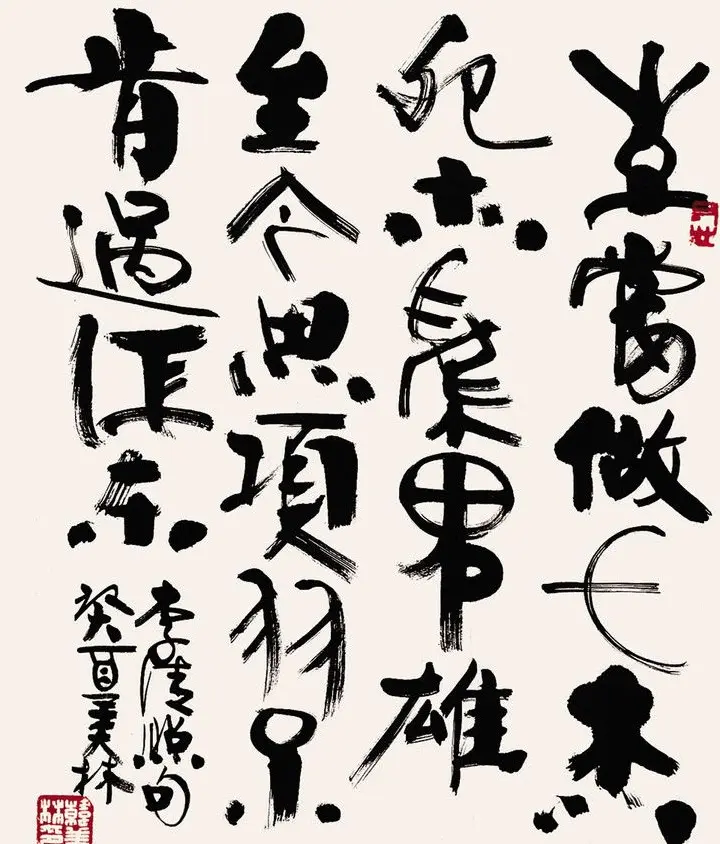 生當做人杰
死亦為鬼雄
至今思項羽不
肯過江东
李清照句
癸酉美林